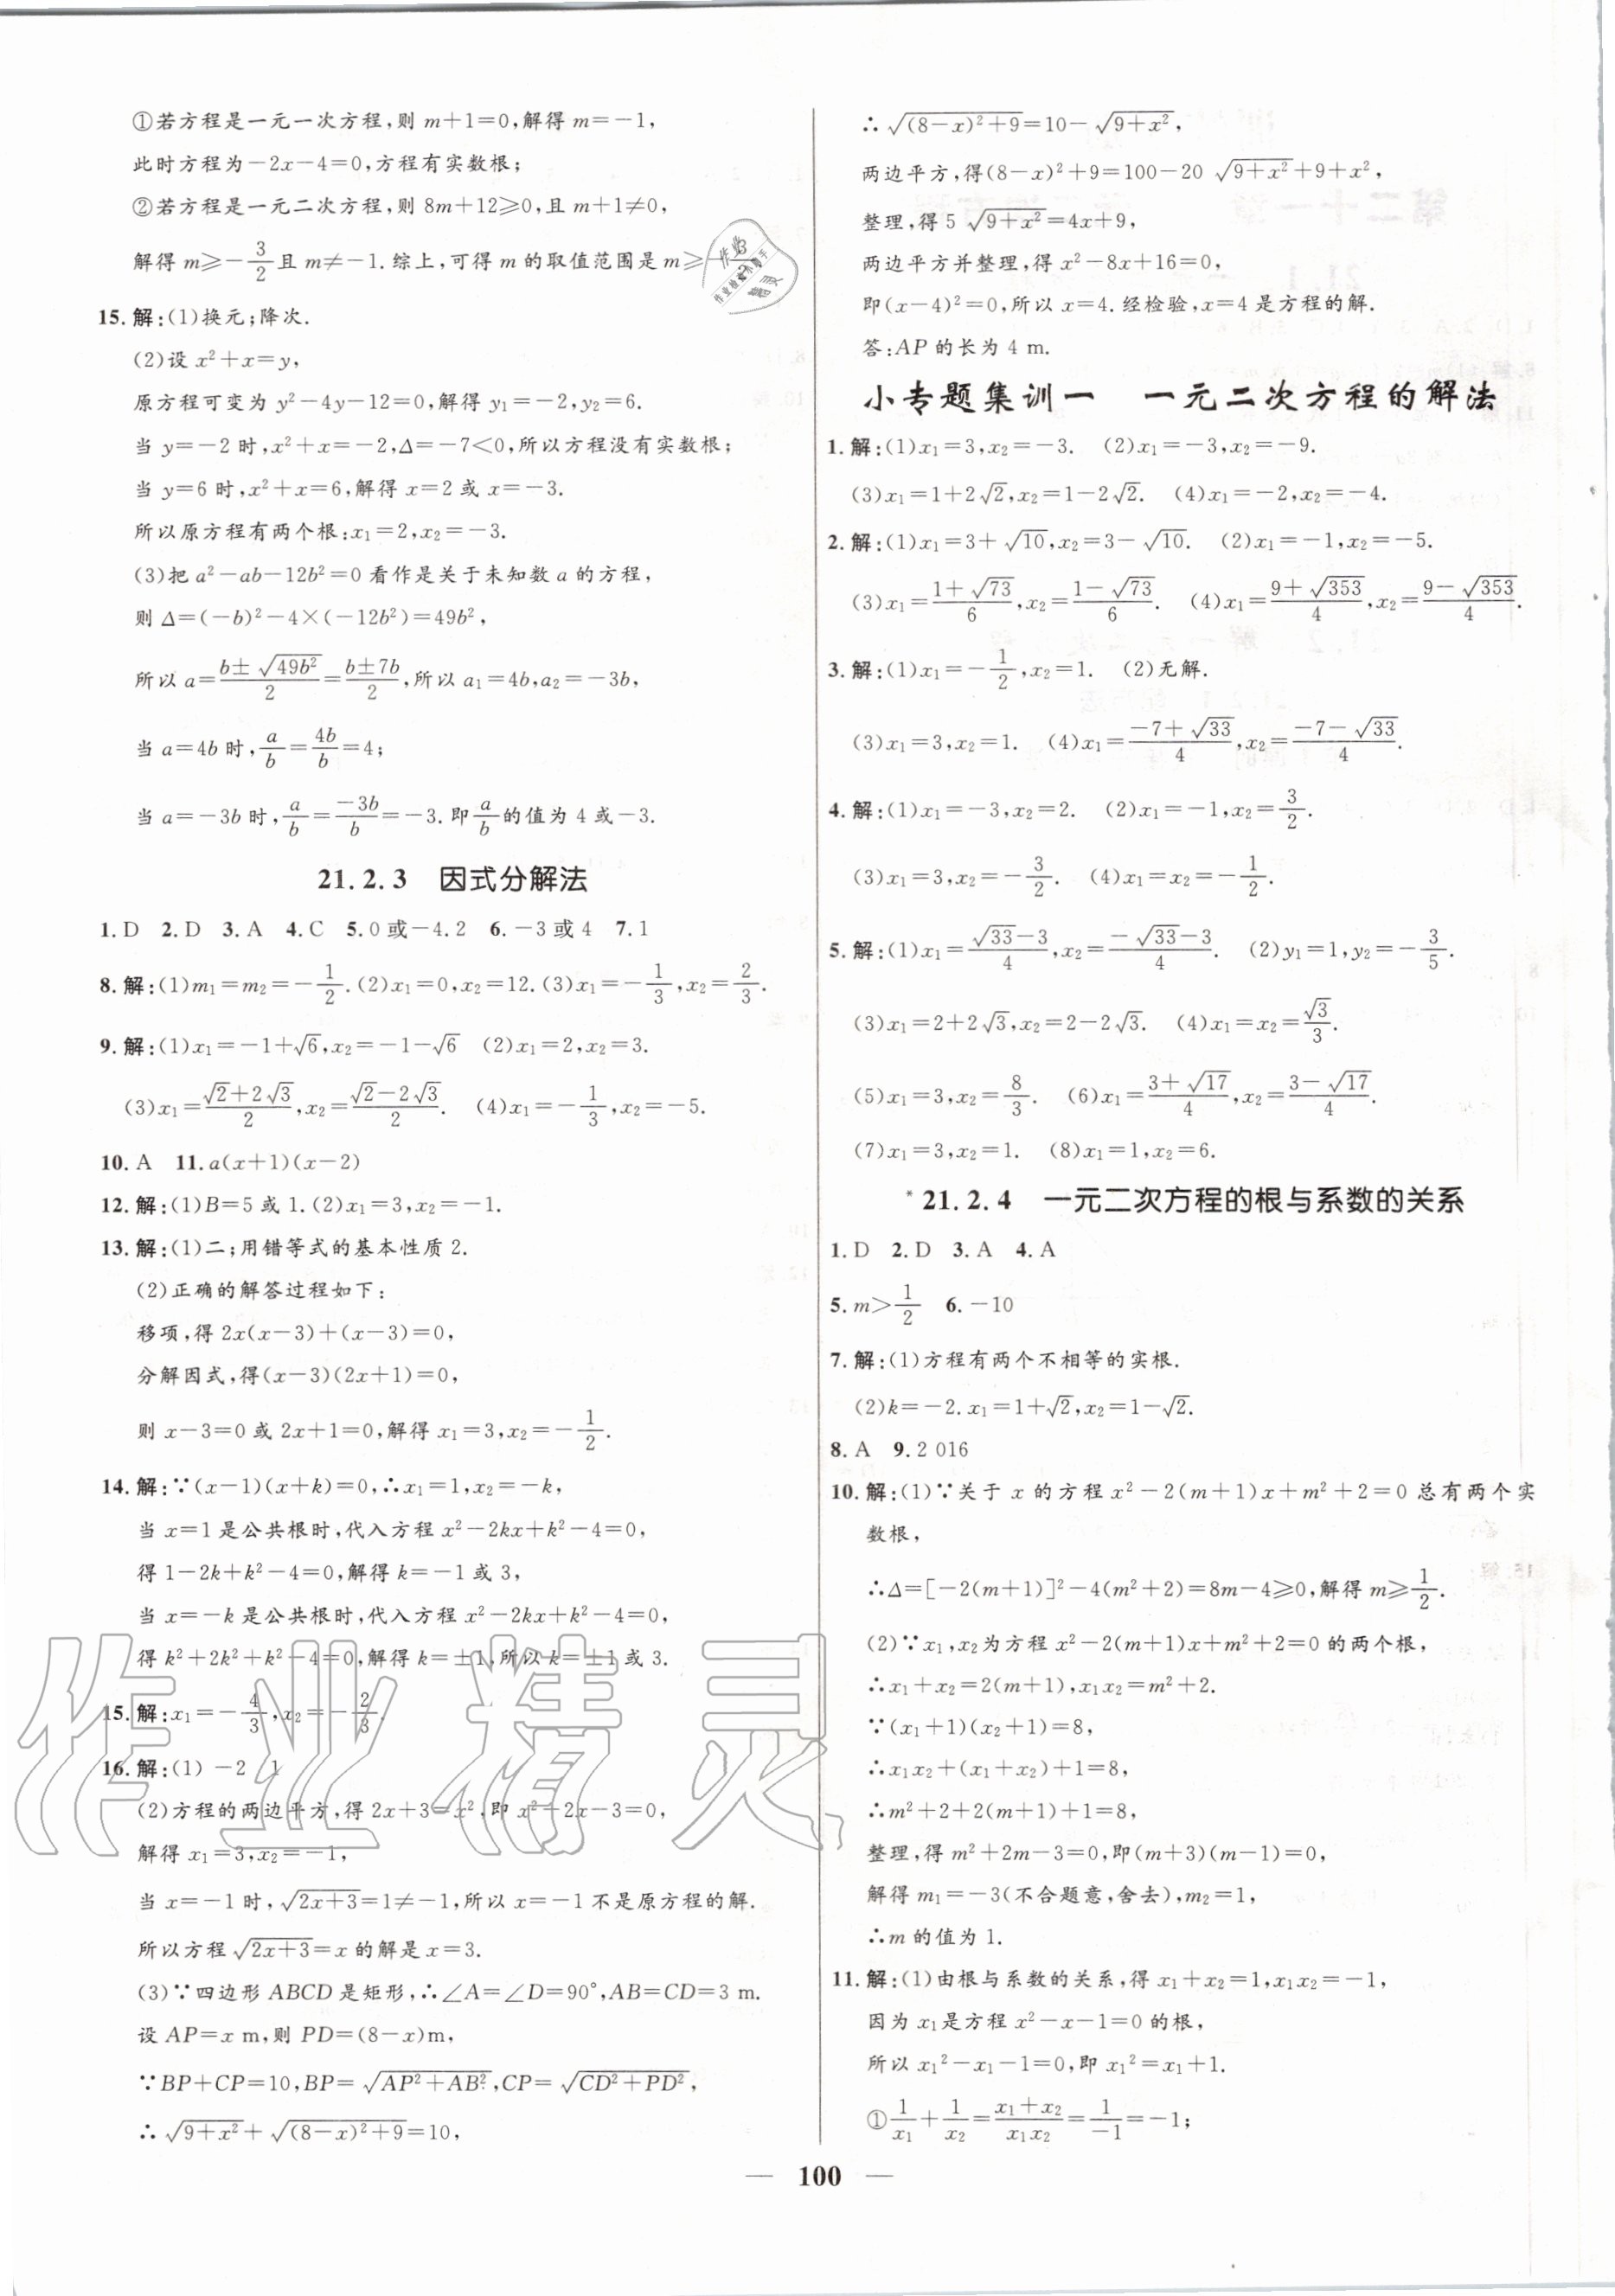 ①若方程是一元一次方程,则 m+1=0,解得 m=-1,
此时方程为-2x-4=0,方程有实数根;
②若方程是一元二次方程,则 8m+12≥0,且 m+1≠0,
解得 m≥-3/2且 m≠-1.综上,可得 m 的取值范围是 m≥-3/2.
15.解:(1)换元;降次.
(2)设 x²+x=y,
原方程可变为 y²-4y-12=0,解得 y₁=-2,y₂=6.
当 y=-2 时,x²+x=-2,Δ=-7<0,所以方程没有实数根;
当 y=6 时,x²+x=6,解得 x=2 或 x=-3.
所以原方程有两个根:x₁=2,x₂=-3.
(3)把 a²-ab-12b²=0 看作是关于未知数 a 的方程,
则 Δ=(-b)²-4×(-12b²)=49b²,
所以 a=(b±√(49b²))/2=(b±7b)/2,所以 a₁=4b,a₂=-3b,
当 a=4b 时,a/b=4b/b=4;
当 a=-3b 时,a/b=-3b/b=-3.即a/b的值为 4 或-3.
21.2.3 因式分解法
1.D 2.D 3.A 4.C 5.0 或-4.2 6.-3 或 4 7.1
8.解:(1)m₁=m₂=-1/2.(2)x₁=0,x₂=12.(3)x₁=-1/3,x₂=2/3.
9.解:(1)x₁=-1+√6,x₂=-1-√6 (2)x₁=2,x₂=3.
(3)x₁=(√2+2√3)/2,x₂=(√2-2√3)/2. (4)x₁=-1/3,x₂=-5.
10.A 11.a(x+1)(x-2)
12.解:(1)B=5 或 1.(2)x₁=3,x₂=-1.
13.解:(1)二;用错等式的基本性质 2.
(2)正确的解答过程如下:
移项,得 2x(x-3)+(x-3)=0,
分解因式,得(x-3)(2x+1)=0,
则 x-3=0 或 2x+1=0,解得 x₁=3,x₂=-1/2.
14.解:∵(x-1)(x+k)=0,∴x₁=1,x₂=-k,
当 x=1 是公共根时,代入方程 x²-2kx+k²-4=0,
得 1-2k+k²-4=0,解得 k=-1 或 3,
当 x=-k 是公共根时,代入方程 x²-2kx+k²-4=0,
得 k²+2k²+k²-4=0,解得 k=±1,所以 k=±1 或 3.
15.解:x₁=-4/3,x₂=-2/3.
16.解:(1) -2 1
(2)方程的两边平方,得 2x+3=x²,即 x²-2x-3=0,
解得 x₁=3,x₂=-1,
当 x=-1 时,√(2x+3)=1≠-1,所以 x=-1 不是原方程的解.
所以方程√(2x+3)=x 的解是 x=3.
(3)∵四边形 ABCD 是矩形,∴∠A=∠D=90°,AB=CD=3 m.
设 AP=x m,则 PD=(8-x)m,
∵BP+CP=10,BP=√(AP²+AB²),CP=√(CD²+PD²),
∴√(9+x²)+√((8-x)²+9)=10,
∴√((8-x)²+9)=10-√(9+x²),
两边平方,得(8-x)²+9=100-20√(9+x²)+9+x²,
整理,得 5√(9+x²)=4x+9,
两边平方并整理,得 x²-8x+16=0,
即(x-4)²=0,所以 x=4.经检验,x=4 是方程的解.
答:AP 的长为 4 m.
小专题集训一 一元二次方程的解法
1.解:(1)x₁=3,x₂=-3. (2)x₁=-3,x₂=-9.
(3)x₁=1+2√2,x₂=1-2√2. (4)x₁=-2,x₂=-4.
2.解:(1)x₁=3+√10,x₂=3-√10. (2)x₁=-1,x₂=-5.
(3)x₁=(1+√73)/6,x₂=(1-√73)/6. (4)x₁=(9+√353)/4,x₂=(9-√353)/4.
3.解:(1)x₁=-1/2,x₂=1. (2)无解.
(3)x₁=3,x₂=1. (4)x₁=(-7+√33)/4,x₂=(-7-√33)/4.
4.解:(1)x₁=-3,x₂=2. (2)x₁=-1,x₂=3/2.
(3)x₁=3,x₂=-3/2. (4)x₁=x₂=-1/2.
5.解:(1)x₁=(√33-3)/4,x₂=(-√33-3)/4. (2)y₁=1,y₂=-3/5.
(3)x₁=2+2√3,x₂=2-2√3. (4)x₁=x₂=√3/3.
(5)x₁=3,x₂=8/3. (6)x₁=(3+√17)/4,x₂=(3-√17)/4.
(7)x₁=3,x₂=1. (8)x₁=1,x₂=6.
*21.2.4 一元二次方程的根与系数的关系
1.D 2.D 3.A 4.A
5.m>1/2 6.-10
7.解:(1)方程有两个不相等的实根.
(2)k=-2.x₁=1+√2,x₂=1-√2.
8.A 9.2 016
10.解:(1)∵关于 x 的方程 x²-2(m+1)x+m²+2=0 总有两个实
数根,
∴Δ=[-2(m+1)]²-4(m²+2)=8m-4≥0,解得 m≥1/2.
(2)∵x₁,x₂为方程 x²-2(m+1)x+m²+2=0 的两个根,
∴x₁+x₂=2(m+1),x₁x₂=m²+2.
∵(x₁+1)(x₂+1)=8,
∴x₁x₂+(x₁+x₂)+1=8,
∴m²+2+2(m+1)+1=8,
整理,得 m²+2m-3=0,即(m+3)(m-1)=0,
解得 m₁=-3(不合题意,舍去),m₂=1,
∴m 的值为 1.
11.解:(1)由根与系数的关系,得 x₁+x₂=1,x₁x₂=-1,
因为 x₁是方程 x²-x-1=0 的根,
所以 x₁²-x₁-1=0,即 x₁²=x₁+1.
①1/x₁+1/x₂=(x₁+x₂)/(x₁x₂)=1/-1=-1;
— 100 —
作业精灵